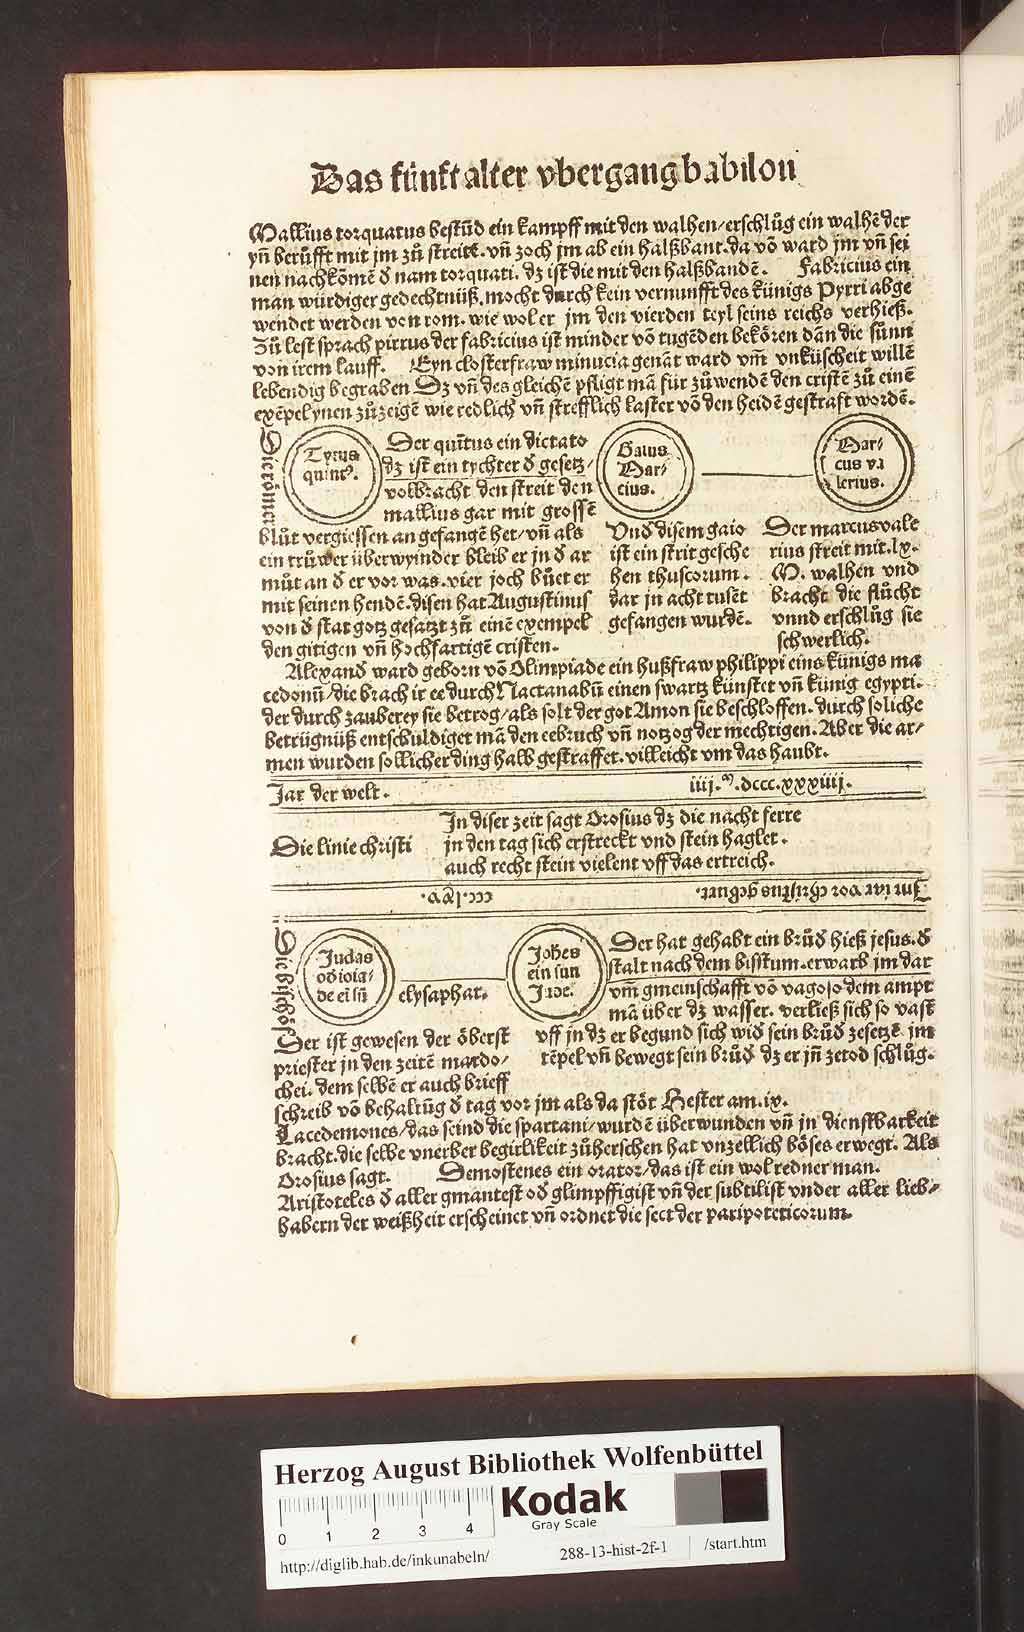 Das fünft alter vbergang babilon
Mallius torquatus bestūd ein kampff mit den walhen/erschlůg ein walhē der
yn berůfft mit jm zů streitē. vñ zoch jm ab ein halßbant. da vō ward jm vñ sei
nen nachkōmē d nam torquati. dz ist die mit den halßbandē. Fabricius ein
man würdiger gedechtnüß. mocht durch kein vernunfft des künigs Pyrri abge
wendet werden von rom. wie wol er jm den vierden teyl seins reichs verhieß.
Zů lest sprach pirrus der fabricius ist minder vō tugēden bekören dān die sunn
von irem lauff. Eyn closterfraw minucia genāt ward vm̄ vnküscheit willē
lebendig begraben Dz vñ des gleichē pfligt mā für zůwendē den cristē zů einē
exēpel ynen zůzeigē wie redlich vñ strefflich laster vō den heidē gestraft wordē.
Die römer
Tytus
quintꝰ.
Der quītus ein dictato
dz ist ein tychter d gesetz/
volbracht den streit den
mallius gar mit grossē
blůt vergiessen angefangē het/vñ als
ein trüwer überwynder bleib er jn d ar
můt an d er vor was. vier joch bůet er
mit seinen hendē. disen hat Augustinus
von d stat gotz gesatzt zů einē exempel
den gitigen vñ hochfartigē cristen.
Gaius
Mar/
cius.
Vnd disem gaio
ist ein strit gesche
hen thuscorum.
dar jn acht tusēt
gefangen wurdē.
Mar/
cus va
lerius.
Der marcus vale
rius streit mit.lx.
M. walhen vnd
bracht die flůcht
vnnd erschlůg sie
schwerlich.
Alexand ward geborn vō Olimpiade ein hußfraw philippi eins künigs ma
cedonū/die brach ir ee durch Nactanabū einen swartz künster vñ künig egypti.
der durch zauberey sie betrog/als solt der got Amon sie beschloffen. durch soliche
betrügnüß entschuldiget mā den eebruch vñ notzog der mechtigen. Aber die ar/
men wurden sollicher ding halb gestraffet. villeicht vm das haubt.
Jar der welt. iiij.ᵐ.dccc.xxxiiij.
Die linie christi
In diser zeit sagt Orosius dz die nacht ferre
in den tag sich erstreckt vnd stein haglet.
auch recht stein vielent vff das ertreich.
Im iar vor christus geburt. ccc.lxv.
Die bischöf
Judas
od ioia/
de ei sū
elysaphat.
Johēs
ein sun
Jude.
Der hat gehabt ein brůd hieß jesus. d
stalt nach dem bisstum. erwarb im dar
vm̄ gmeinschafft vō vagoso dem ampt
mā über dz wasser. verließ sich so vast
vff jn dz er begund sich wid sein brůd zesetzē im
tēpel vñ bewegt sein brůd dz er jn̄ zetod schlůg.
Der ist gewesen der öberst
priester in den zeitē mardo/
chei. dem selbē er auch brieff
schreib vō behaltūg d tag vor jm als da stöt Hester am.ix.
Lacedemones/das seind die spartani/wurdē überwunden vñ jn dienstbarkeit
bracht. die selbe vnerber begirlikeit zůherschen hat vnzellich böses erwegt. Als
Orosius sagt. Demostenes ein orator/das ist ein wol redner man.
Aristoteles d aller gmantest od glimpffigist vñ der subtilist vnder aller lieb/
habern der weißheit erscheinet vñ ordnet die sect der paripoteticorum.
Herzog August Bibliothek Wolfenbüttel
0 1 2 3 4
Kodak
Gray Scale
http://diglib.hab.de/inkunabeln/ 288-13-hist-2f-1 /start.htm